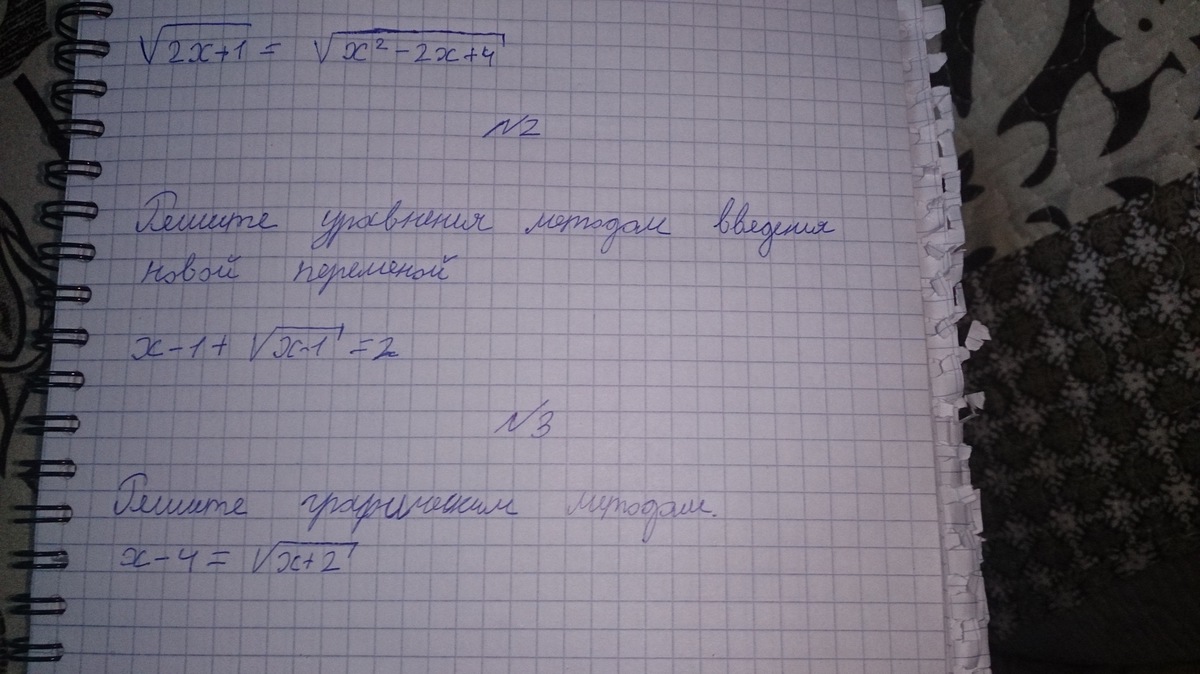 √2x+1 = √x²-2x+4
N2
Решите уравнения методом введения
новой переменой
x-1+ √x-1 =2
N3
Решите графическим методом.
x-4= √x+2